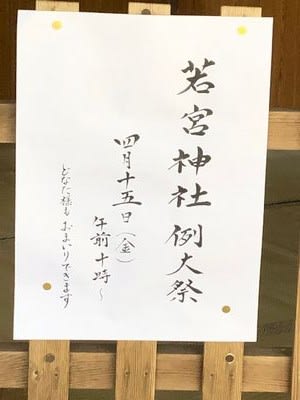 若宮神社例大祭
四月十五日(金)
午前十時~
どなた様もおまいりできます